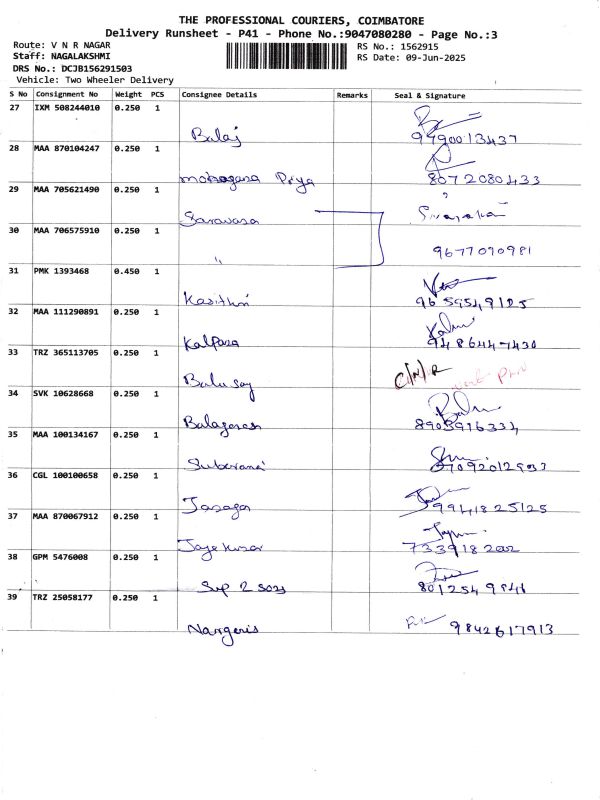 THE PROFESSIONAL COURIERS, COIMBATORE
Delivery Runsheet - P41 - Phone No.:9047080280 - Page No.:3
Route: V N R NAGAR
Staff: NAGALAKSHMI
DRS No.: DCJB156291503
Vehicle: Two Wheeler Delivery
RS No.: 1562915
RS Date: 09-Jun-2025
S No Consignment No Weight PCS Consignee Details Remarks Seal & Signature
27 IXM 508244010 0.250 1
Balaj 9790013437
28 MAA 870104247 0.250 1
Priya 8072080433
29 MAA 705621490 0.250 1
Saravasa
30 MAA 706575910 0.250 1
" 9677090981
31 PMK 1393468 0.450 1
9659549125
32 MAA 111290891 0.250 1
Kalpasa 9486447430
33 TRZ 365113705 0.250 1
Balusay C/N/R
34 SVK 10628668 0.250 1
8903916334
35 MAA 100134167 0.250 1
36 CGL 100100658 0.250 1
Jasagar 9941825125
37 MAA 870067912 0.250 1
7339182002
38 GPM 5476008 0.250 1
39 TRZ 25058177 0.250 1
Nargeris 9842617913